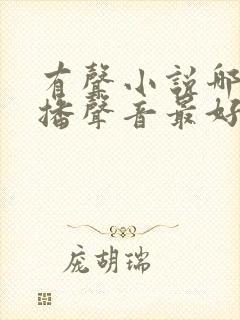 有聲小說哪
播聲音最好
庞胡瑞